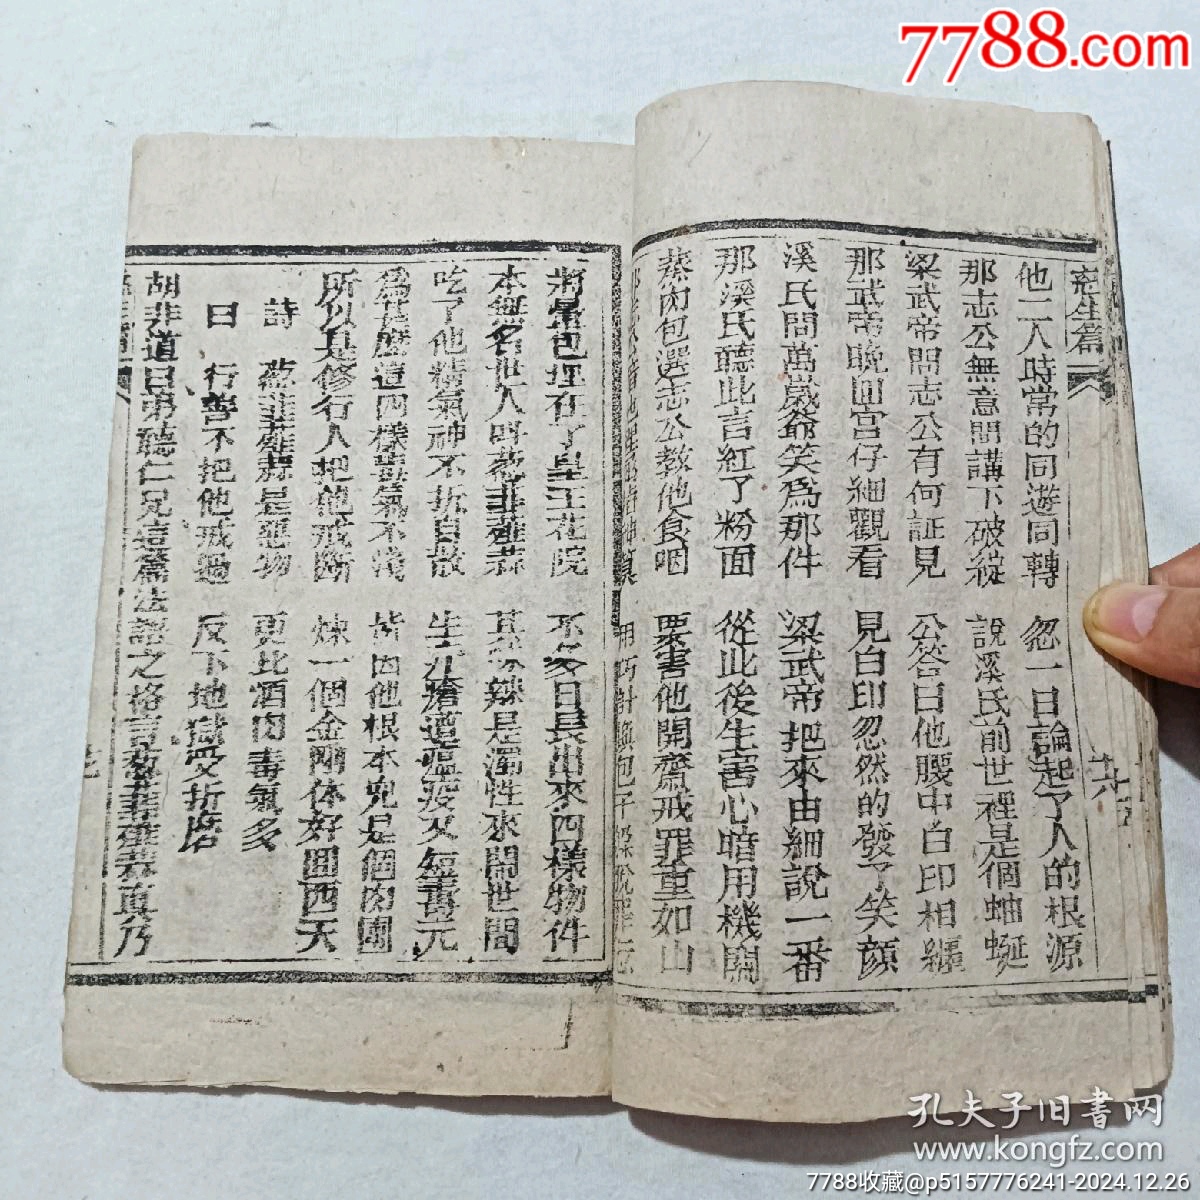 7788.com
寃生篇
他二人時常的同遊同轉 忽一日論起了人的根源
那志公無意間講下破綻 說溪氏前世裡是個蚰蜒
梁武帝問志公有何証見 公答曰他腰中白印相纏
那武帝晚回宮仔細觀看 見白印忽然的發了笑顏
溪氏問萬歲爺笑為那件 梁武帝把來由細說一番
那溪氏聽此言紅了粉面 從此後生害心暗用機關
蒸肉包選志公教他食咽 要害他開齋戒罪重如山
用巧計換包子
將葷包埋在了皇王花院 不多日長出來四樣物件
本無名世人叫葱韭薤蒜 其 辣是濁性來閙世間
吃了他精氣神不折自散 生 瘡遭瘟疫又短壽元
為甚麼這四樣毒氣不淺 皆因他根本兜是個肉團
所以是修行人把他戒斷 煉一個金剛体好回西天
詩 葱韭薤蒜是惡物 更比酒肉毒氣多
曰 行善不把他戒過 反下地獄受折磨
胡非道曰弟聽仁兄這篇法語之格言葱韭薤蒜真乃
孔夫子旧書网
www.kongfz.com
7788收藏@p5157776241-2024.12.26